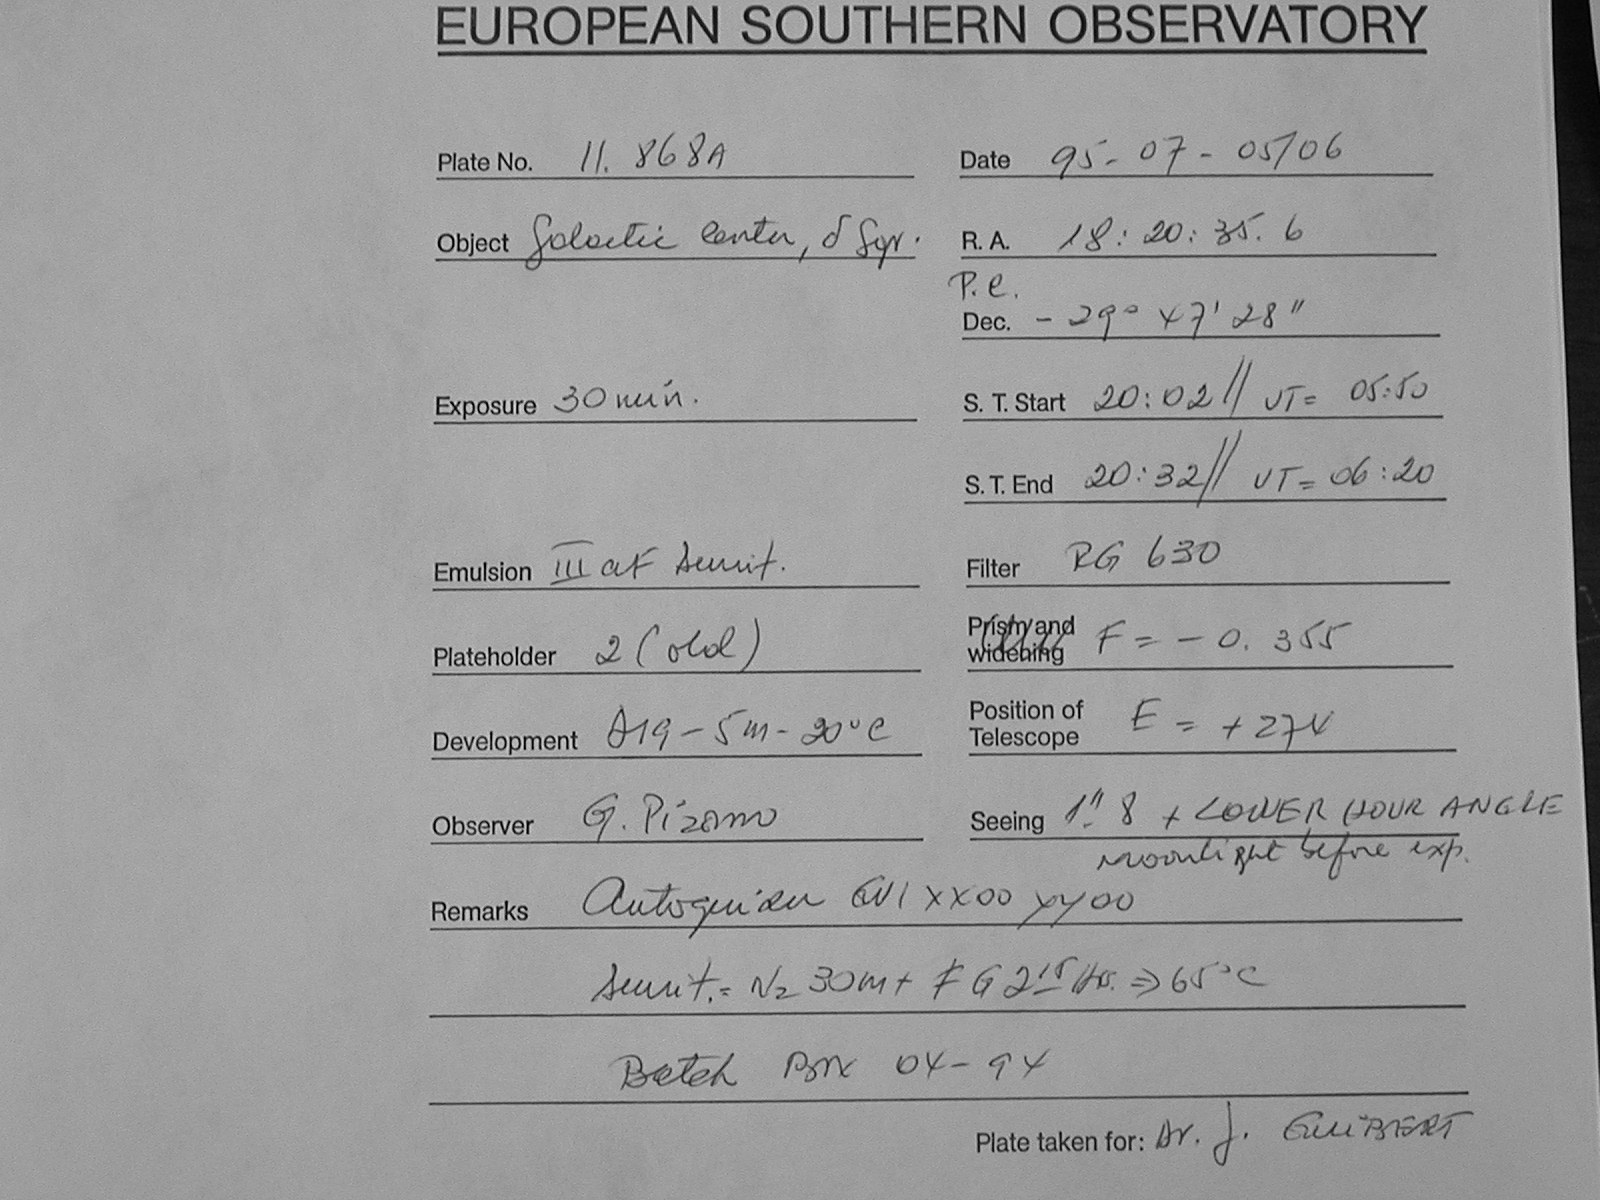 EUROPEAN SOUTHERN OBSERVATORY
Plate No. 11. 868A
Date 95-07-05/06
Object Galactic center, δ Sgr.
R. A. 18:20:35.6
P.e.
Dec. -29° 47' 28"
Exposure 30 min.
S. T. Start 20:02 // UT= 05:50
S. T. End 20:32 // UT= 06:20
Emulsion III aF sensit.
Filter RG 630
Plateholder 2 (old)
Prism and widening F = -0.355
Development D19-5m-20°C
Position of Telescope E = +274
Observer G. Pizarro
Seeing 1"8 + LOWER HOUR ANGLE
moonlight before exp.
Remarks Autoguider GV1 XX00 YY00
Sensit.= N2 30m + FG 2 15 Hs. => 65°C
Batch Box 04-94
Plate taken for: Dr. J. GUIBERT